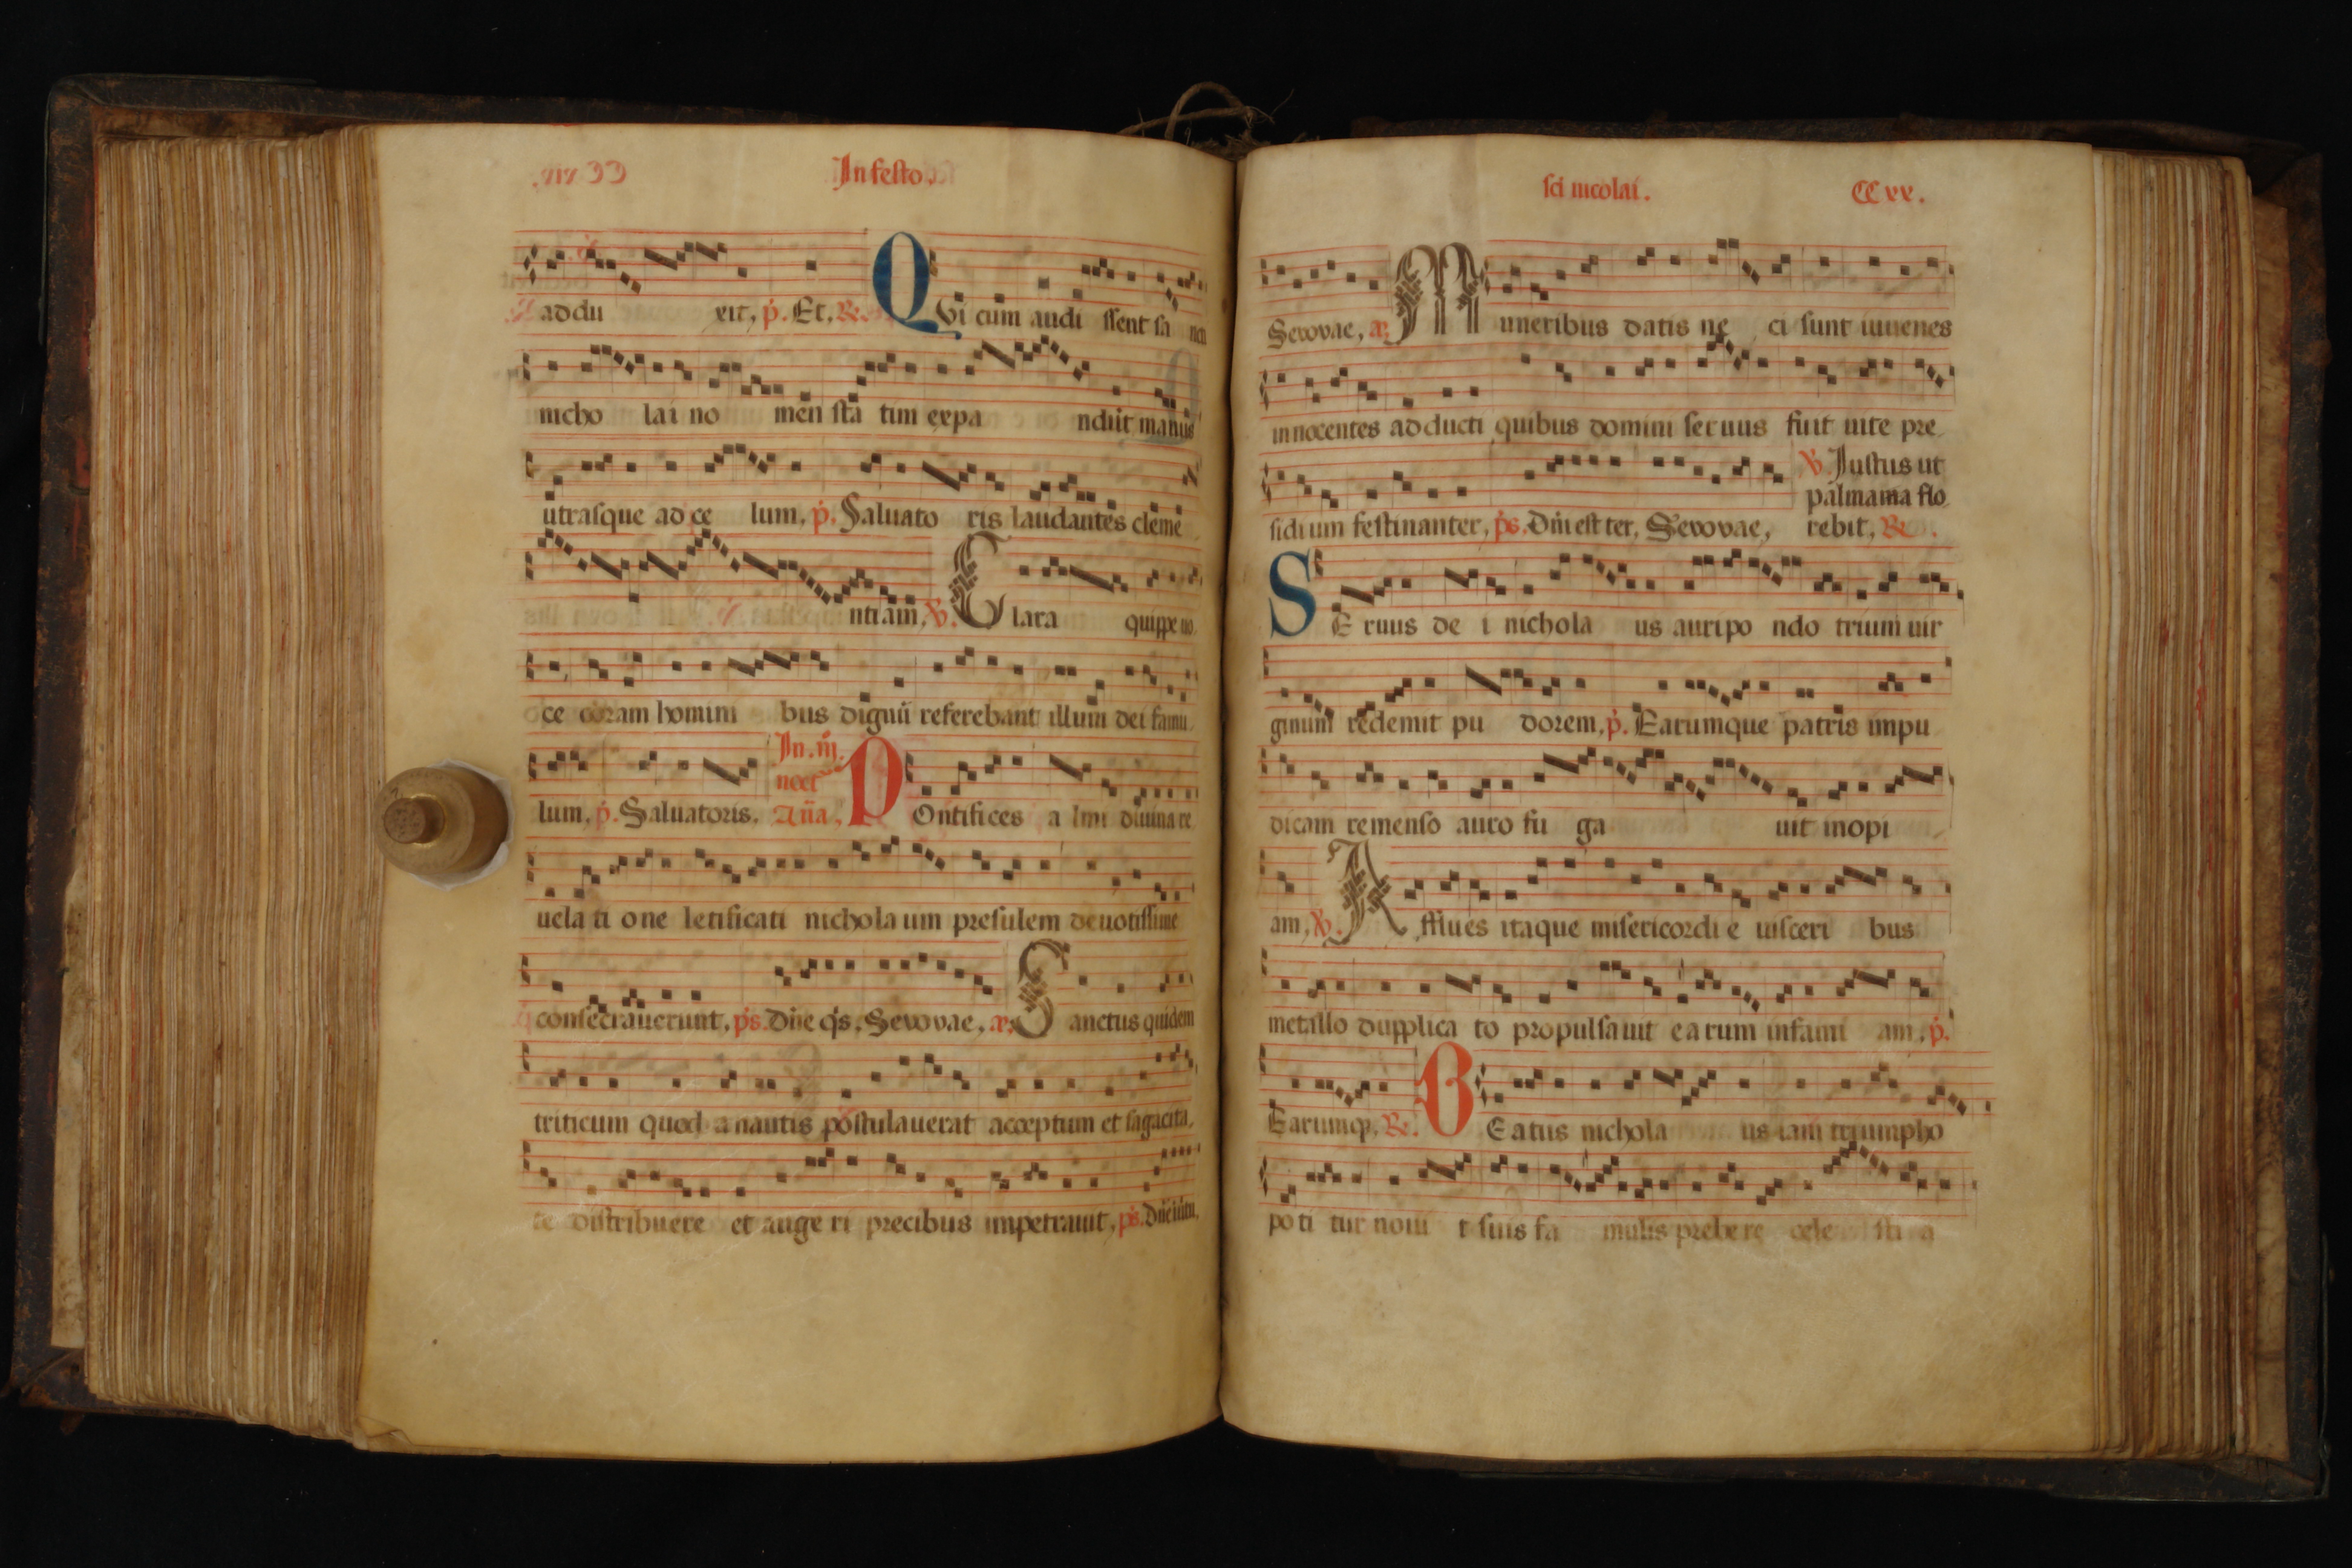 In festo.
addu xit, p. Et, R. Qvi cum audi ssent sa ncti
nicho lai no men sta tim expa ndiut manus
utrasque ad ce lum, p. Saluato ris laudantes cleme
ntiam, V. C lara quippe uo
ce coram homini bus dignū referebant illum dei famu
In. iii.
noct
lum, p. Saluatoris. Aña, P Ontifices a lmi diuina re
uela ti one letificati nichola um presulem deuotissime
consecrauerunt, ps. Dñe qs, Sevovae, S anctus quidem
triticum quod a nautis postulauerat acceptum et sagacita
te distribuere et auge ri precibus impetrauit, ps. Dñe
sci nicolai. CCxx.
Sevovae, M uneribus datis ne ci sunt iuuenes
innocentes adducti quibus domini seruus fuit uite pre
V. Justus ut
palmama flo
sidi um festinanter, ps. Dñi est ter, Sevovae, rebit, R.
S E ruus de i nichola us auripo ndo trium uir
ginum redemit pu dorem, p. Earumque patris impu
dicam remenso auro fu ga uit inopi
am, V. A fflues itaque misericordi e uisceri bus
metallo dupplica to propulsauit earum infami am, p.
Earumq, R. B Eatus nichola us iam triumpho
poti tur noui t suis fa mulis prebe re cele sti a